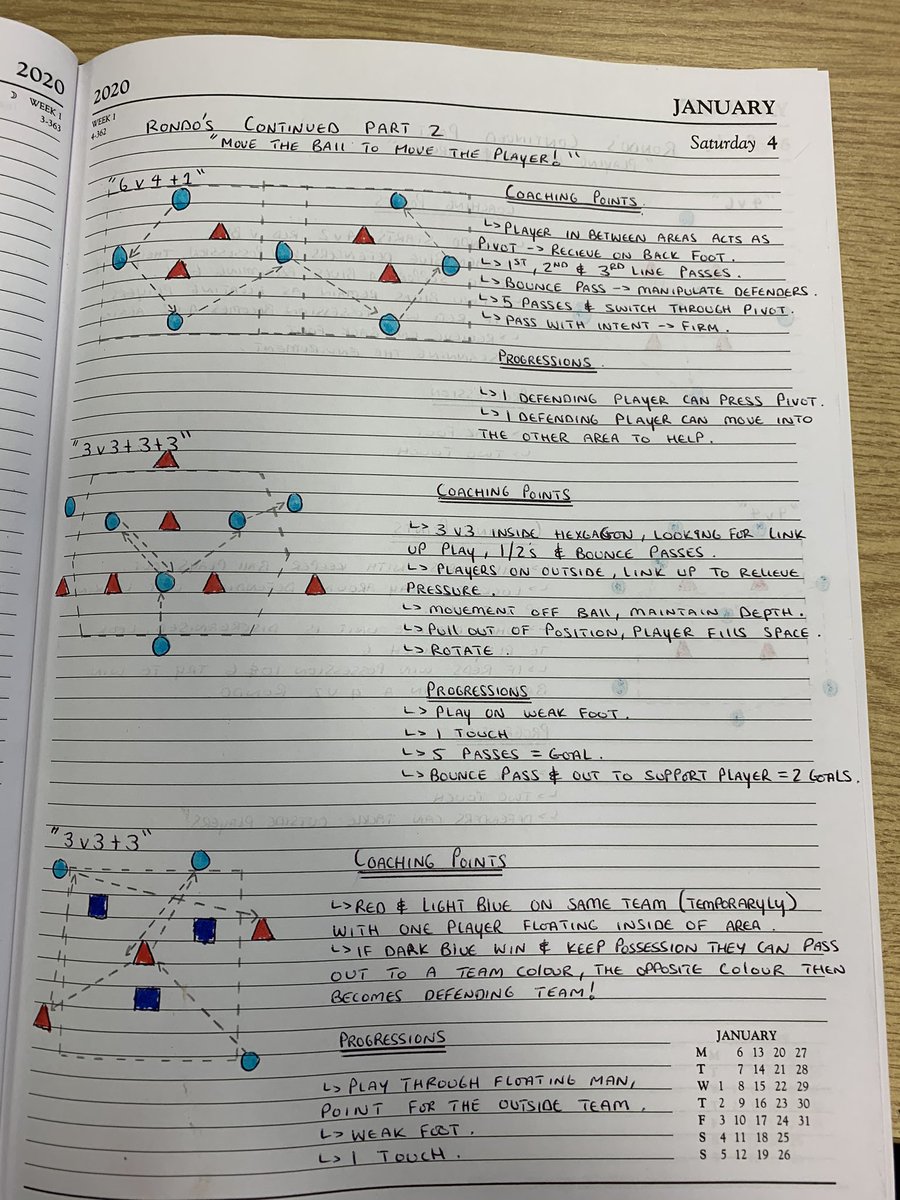 2020
WEEK 1
3-363
2020
JANUARY
WEEK 1
4-362
Saturday 4
RONDO'S CONTINUED PART 2
"MOVE THE BALL TO MOVE THE PLAYER!"
"6 v 4 + 1"
COACHING POINTS.
↳ PLAYER IN BETWEEN AREAS ACTS AS
PIVOT -> RECIEVE ON BACK FOOT.
↳ 1ST, 2ND & 3RD LINE PASSES.
↳ BOUNCE PASS -> MANIPULATE DEFENDERS.
↳ 5 PASSES & SWITCH THROUGH PIVOT.
↳ PASS WITH INTENT -> FIRM.
PROGRESSIONS.
↳ 1 DEFENDING PLAYER CAN PRESS PIVOT.
↳ 1 DEFENDING PLAYER CAN MOVE INTO
THE OTHER AREA TO HELP.
"3 v 3 + 3 + 3"
COACHING POINTS
↳ 3 v 3 INSIDE HEXGAGON, LOOKING FOR LINK
UP PLAY, 1/2's & BOUNCE PASSES.
↳ PLAYERS ON OUTSIDE, LINK UP TO RELIEVE
PRESSURE.
↳ MOVEMENT OFF BALL, MAINTAIN DEPTH.
↳ PULL OUT OF POSITION, PLAYER FILLS SPACE.
↳ ROTATE
PROGRESSIONS
↳ PLAY ON WEAK FOOT.
↳ 1 TOUCH
↳ 5 PASSES = GOAL.
↳ BOUNCE PASS & OUT TO SUPPORT PLAYER = 2 GOALS.
"3 v 3 + 3"
COACHING POINTS
↳ RED & LIGHT BLUE ON SAME TEAM (TEMPORARYLY)
WITH ONE PLAYER FLOATING INSIDE OF AREA.
↳ IF DARK BLUE WIN & KEEP POSSESSION THEY CAN PASS
OUT TO A TEAM COLOUR, THE OPPOSITE COLOUR THEN
BECOMES DEFENDING TEAM!
PROGRESSIONS
↳ PLAY THROUGH FLOATING MAN,
POINT FOR THE OUTSIDE TEAM.
↳ WEAK FOOT.
↳ 1 TOUCH.
JANUARY
M 6 13 20 27
T 7 14 21 28
W 1 8 15 22 29
T 2 9 16 23 30
F 3 10 17 24 31
S 4 11 18 25
S 5 12 19 26